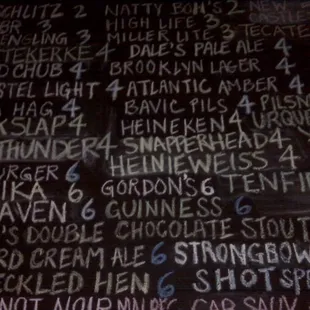 SCHLITZ 2 NATTY BOH'S 2 NEW
3 HIGH LIFE 3 CASTLE
ENSLING 3 MILLER LITE 3 TECATE
TEKERKE 4 DALE'S PALE ALE 4
D CHUB 4 BROOKLYN LAGER 4
STEL LIGHT 4 ATLANTIC AMBER 4
HAG 4 BAVIC PILS 4 PILSN
KSLAP 4 HEINEKEN 4 URQUE
THUNDER 4 SNAPPERHEAD 4
HEINIEWEISS 4
URGER 6 GORDON'S 6 TENFI
IKA 6
AVEN 6 GUINNESS 6
'S DOUBLE CHOCOLATE STOUT
RD CREAM ALE 6 STRONGBOW
ECKLED HEN 6 SHOT SPE
NOT NOIR MALBEC CAB SAUV